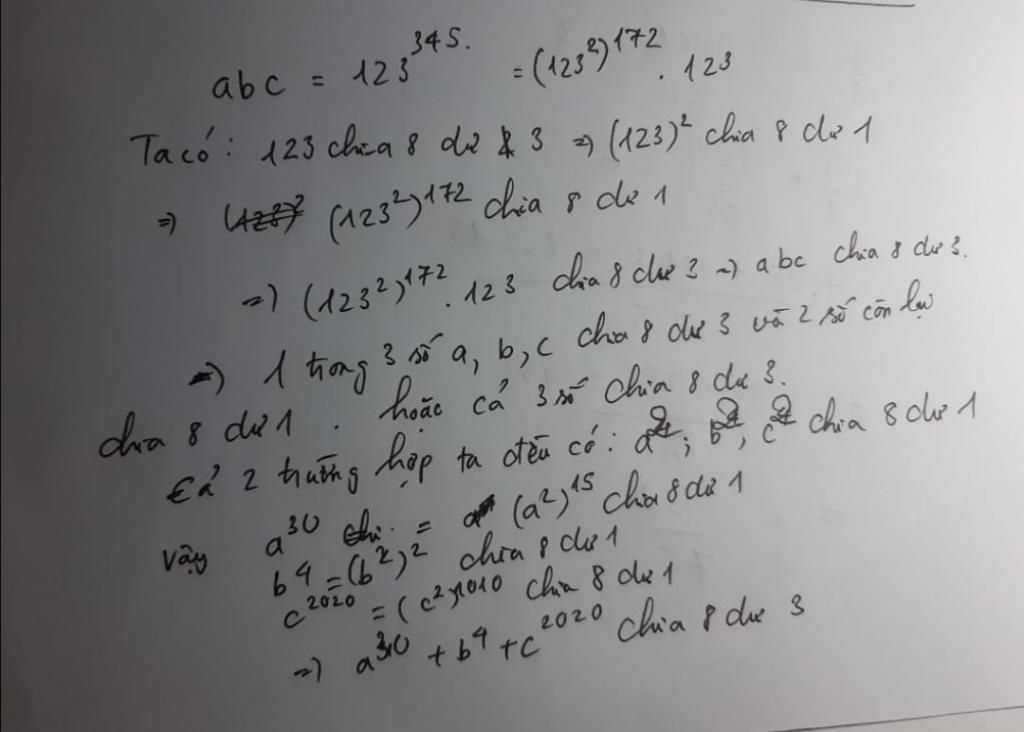 abc = 123^345. = (123^2)^172 . 123
Ta có: 123 chia 8 dư 3 => (123)^2 chia 8 dư 1
=> (123^2)^172 chia 8 dư 1
=> (123^2)^172 . 123 chia 8 dư 3 => abc chia 8 dư 3.
=> 1 trong 3 số a, b, c chia 8 dư 3 và 2 số còn lại
chia 8 dư 1 . hoặc cả 3 số chia 8 dư 3.
Cả 2 trường hợp ta đều có: a^2; b^2, c^2 chia 8 dư 1
Vậy a^30 = (a^2)^15 chia 8 dư 1
b^4 = (b^2)^2 chia 8 dư 1
c^2020 = (c^2)^1010 chia 8 dư 1
=> a^30 + b^4 + c^2020 chia 8 dư 3